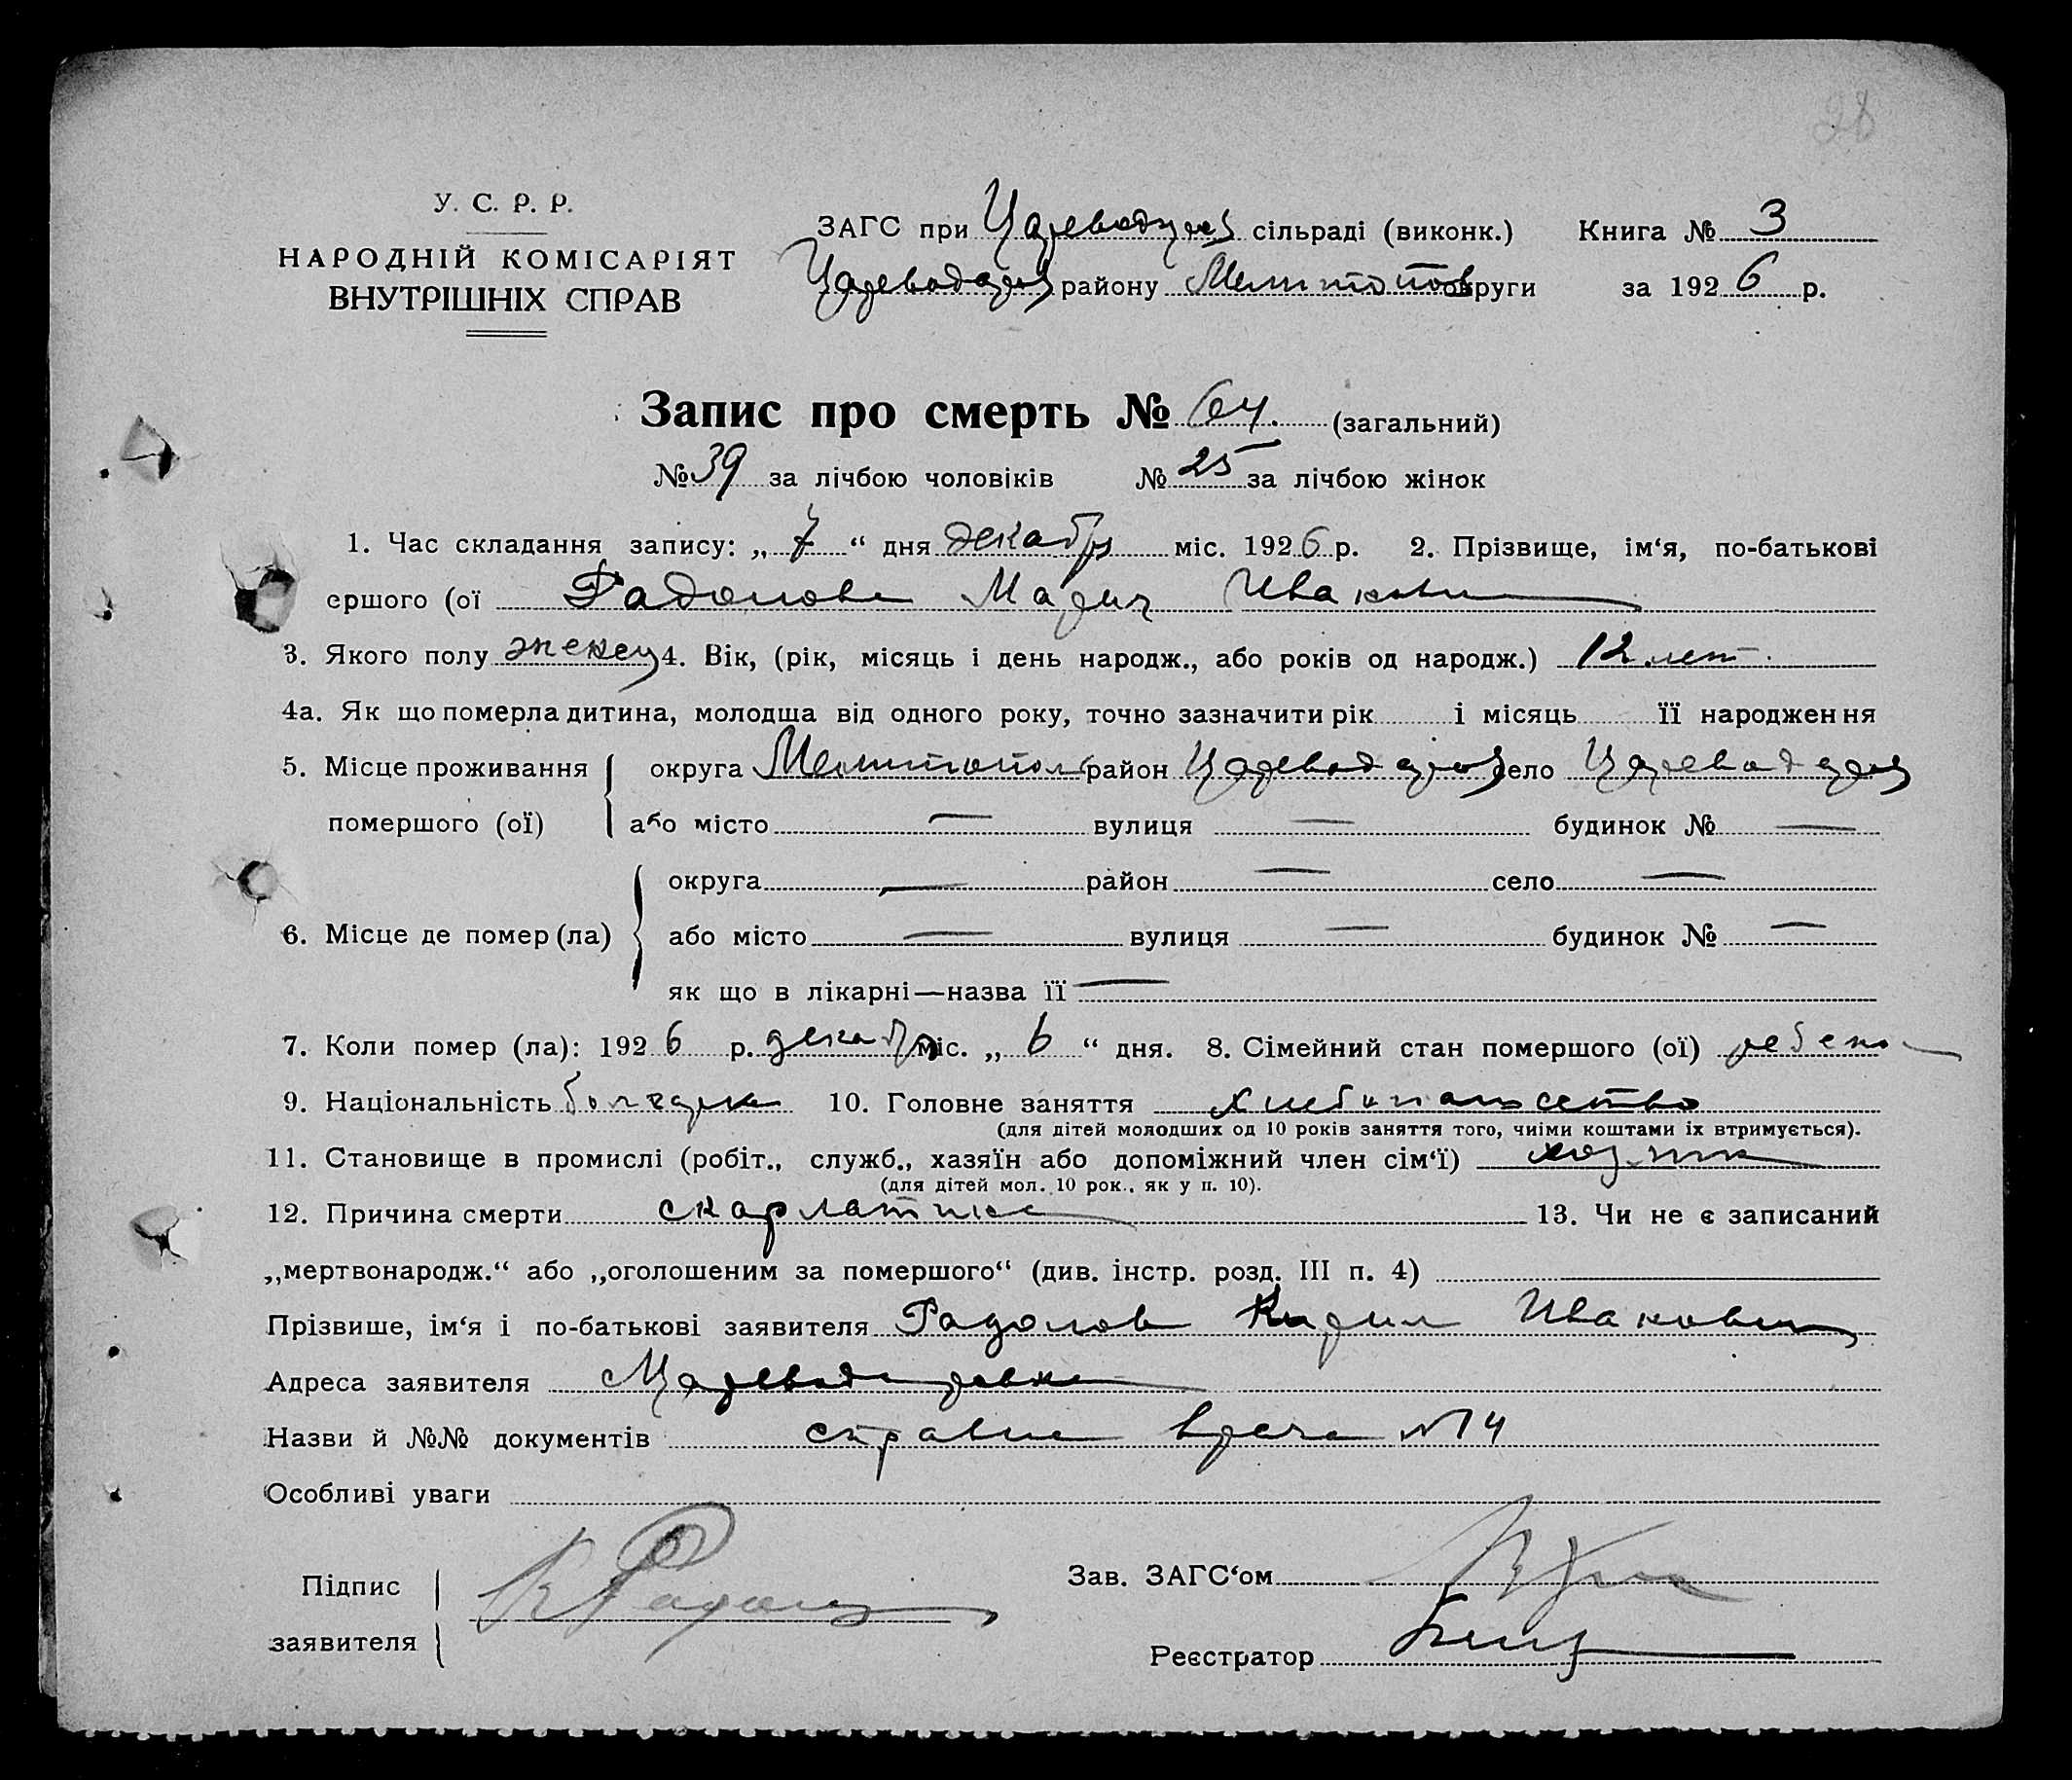 28
У. С. Р. Р.
НАРОДНІЙ КОМІСАРІЯТ
ВНУТРІШНІХ СПРАВ
ЗАГС при сільраді (виконк.) Книга № 3
району Мелитопол округи за 1926 р.
Запис про смерть № 64. (загальний)
№ 39 за лічбою чоловіків № 25 за лічбою жінок
1. Час складання запису: „ 7 “ дня декабря міс. 1926 р. 2. Прізвище, ім‘я, по-батькові
ершого (ої Радолова Мария Ивановна
3. Якого полу женск 4. Вік, (рік, місяць і день народж., або років од народж.) 12 лет.
4а. Як що померла дитина, молодша від одного року, точно зазначити рік і місяць її народження
5. Місце проживання округа Мелитопол район село
або місто — вулиця — будинок № —
помершого (ої)
округа — район — село —
6. Місце де помер (ла) або місто — вулиця — будинок № —
як що в лікарні—назва її —
7. Коли помер (ла): 1926 р. декабря міс. „ 6 “ дня. 8. Сімейний стан помершого (ої) ребенок
9. Національність болгарка 10. Головне заняття хлебопашество
(для дітей молодших од 10 років заняття того, чиїми коштами їх втримується).
11. Становище в промислі (робіт., служб., хазяїн або допоміжний член сім‘ї)
(для дітей мол. 10 рок., як у п. 10).
12. Причина смерти скарлатина 13. Чи не є записаний
„мертвонародж.“ або „оголошеним за помершого“ (див. інстр. розд. III п. 4)
Прізвише, ім‘я і по-батькові заявителя Радолов Кирил Иванович
Адреса заявителя
Назви й №№ документів справка врача №14
Особливі уваги
Підпис
заявителя
Зав. ЗАГС‘ом
Реєстратор